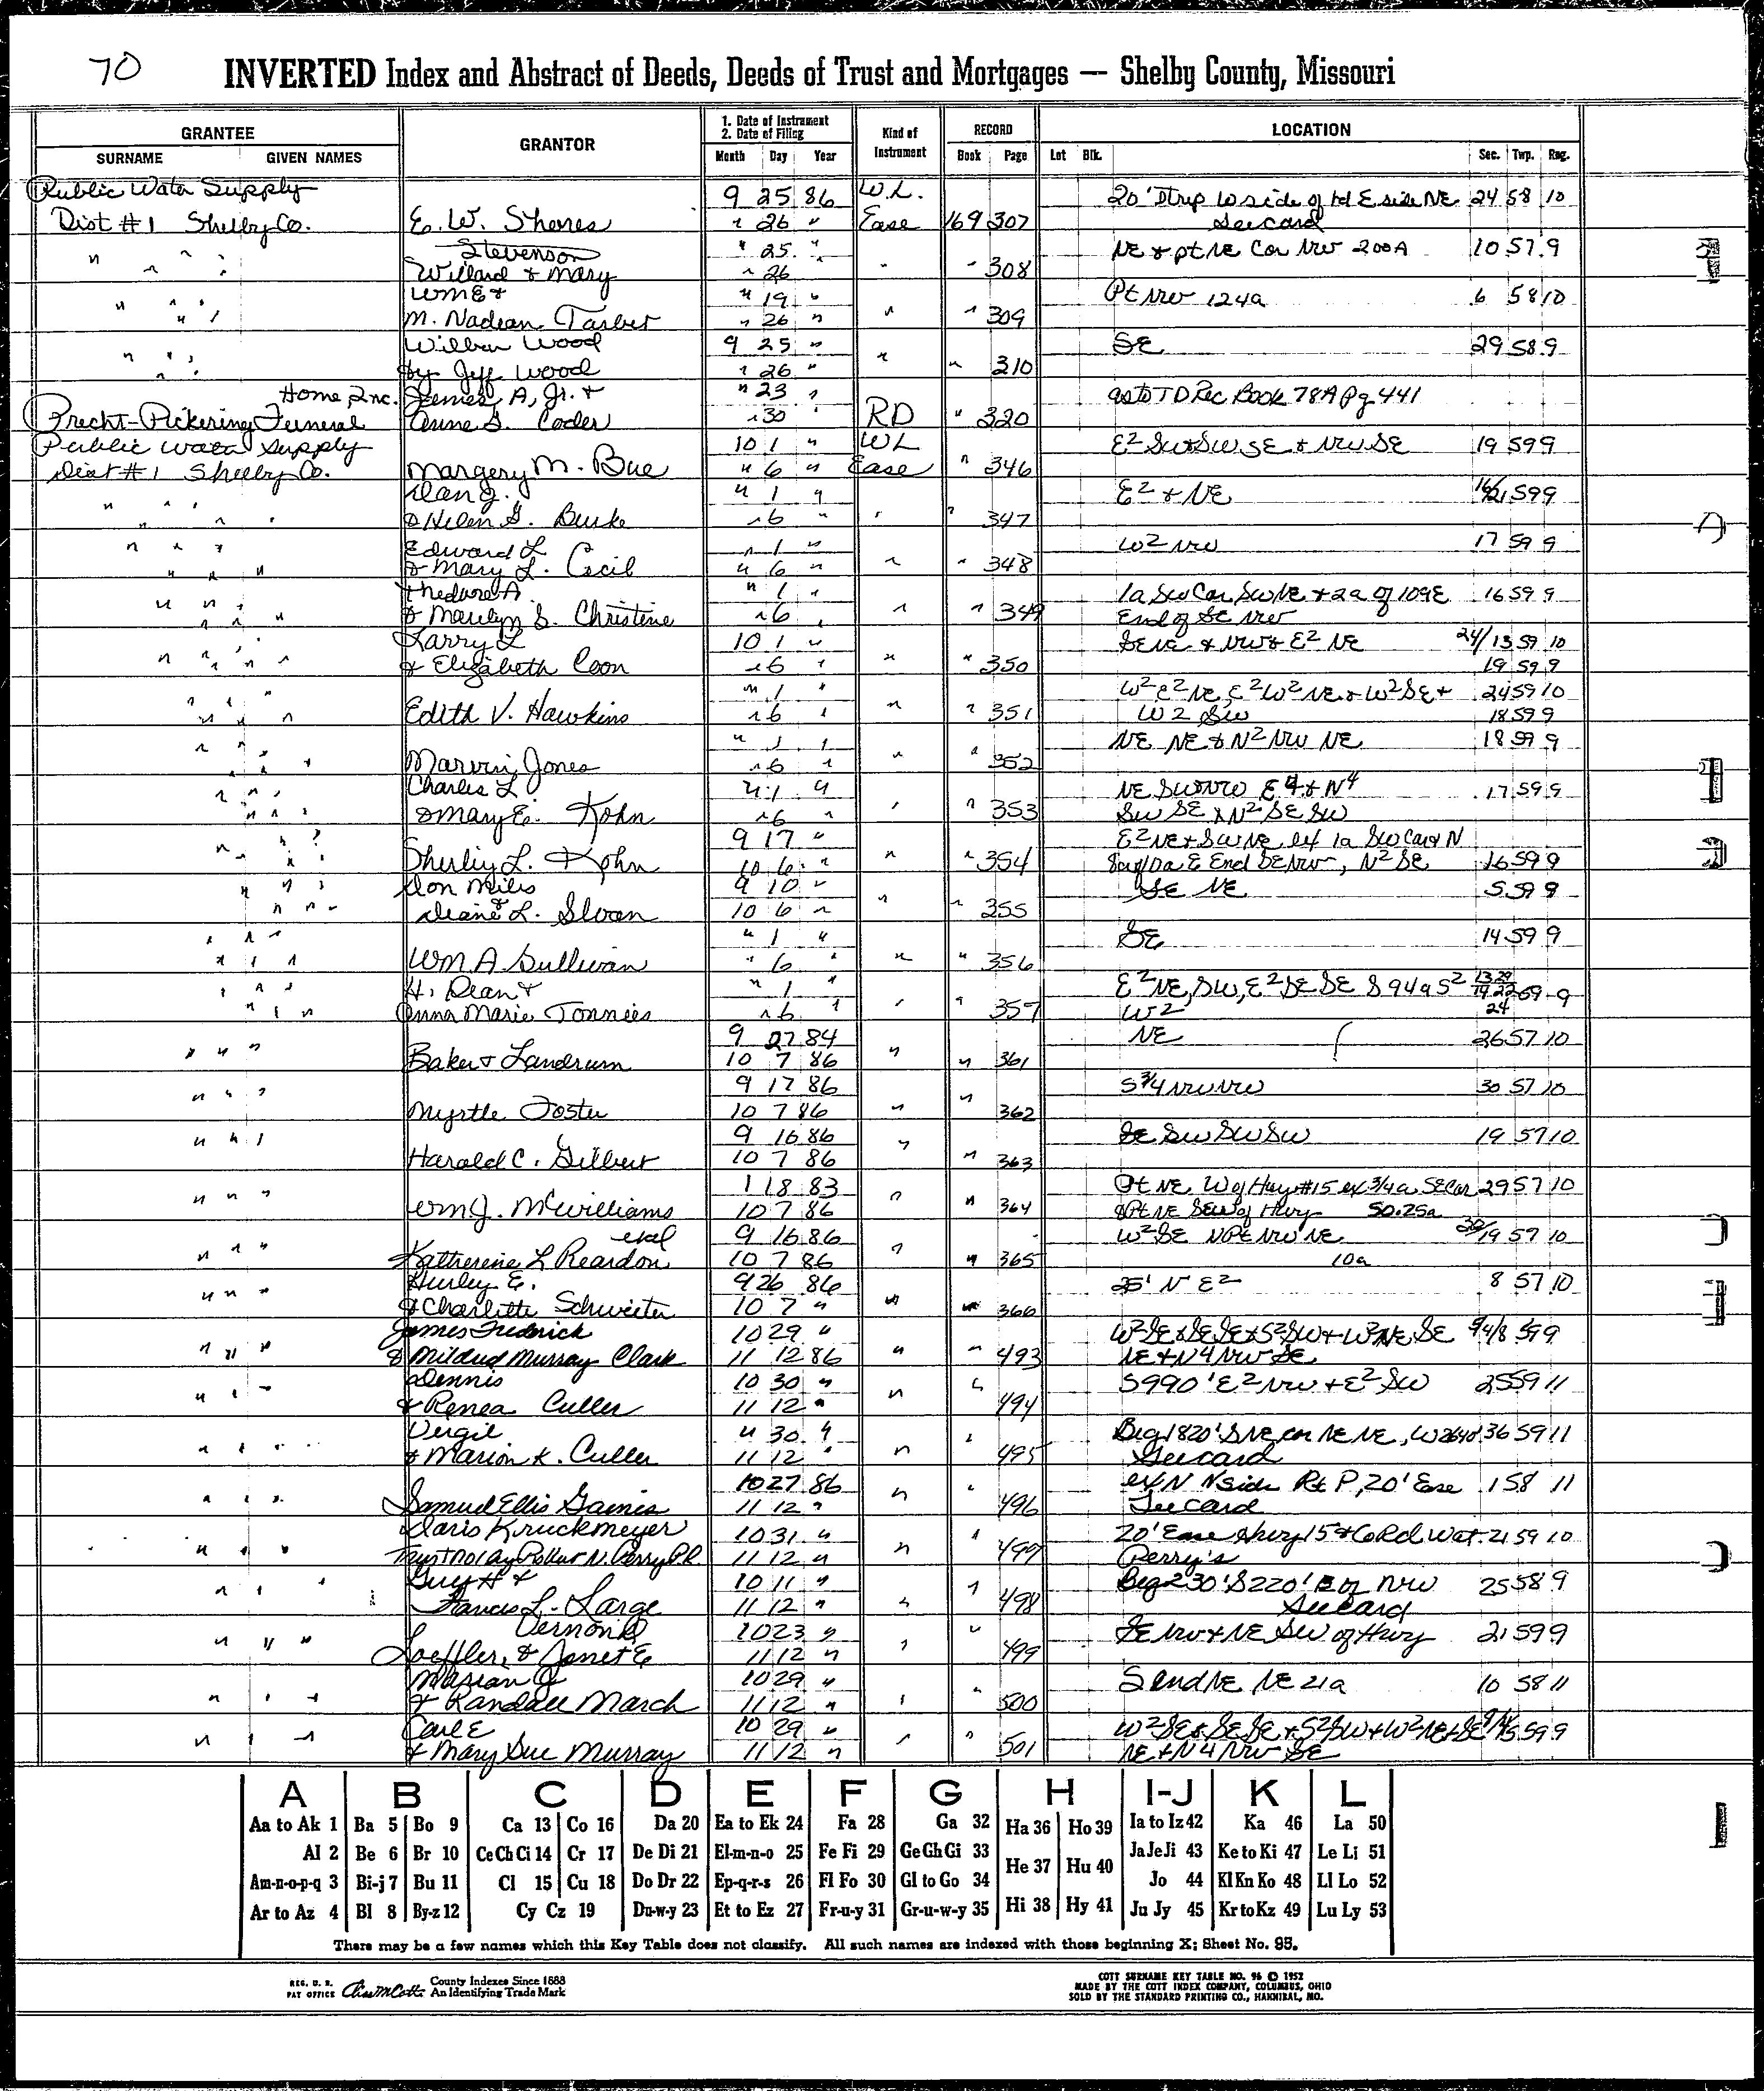 70
INVERTED Index and Abstract of Deeds, Deeds of Trust and Mortgages — Shelby County, Missouri
GRANTEE GRANTOR 1. Date of Instrument 2. Date of Filing Kind of Instrument RECORD LOCATION
SURNAME GIVEN NAMES Month Day Year Book Page Lot Blk. Sec. Twp. Rng.
Public Water Supply 9 25 86 W.L. 20' Strip W side of E side NE 24 58 10
Dist #1 Shelby Co. E. W. Shores " 26 " Ease 169 307 See card
" " " Stevenson " 25 " NE & pt NE Cor NW 200A 10 57 9
" " Willard & Mary " 26 " " 308
" " " Wm E & " 19 " Pt NW 124a 6 58 10
" " M. Nadean Tarbet " 26 " " " 309
" " " Wilbur Wood 9 25 " SE 29 58 9
" " by Jeff Wood " 26 " " " 310
Home, Inc. James A, Jr. & " 23 " as to TD Rec Book 78A Pg 441
Precht-Pickering Funeral Anne S. Coder " 30 " RD " 320
Public Water Supply 10 1 " WL E2 SW & SW SE & NW SE 19 59 9
Dist #1 Shelby Co. Margery M. Bue " 6 " Ease " 346
" " " Dan J. " 1 " E2 & NE 16/21 59 9
" " " & Helen G. Burke " 6 " " " 347
" " " Edward L " 1 " W2 NW 17 59 9
" " " & Mary L. Cecil " 6 " " " 348
" " " Theodore A " 1 " 1a SW Cor SW NE & 2a of 10a E 16 59 9
" " " & Marilyn S. Christine " 6 " " " 349 End of SE NW
" " " Larry L 10 1 " SE NE & NW & E2 NE 24/13 59 10
" " " & Elizabeth Coon " 6 " " " 350 19 59 9
" " " " 1 " W2 E2 NE, E2 W2 NE & W2 SE & 24 59 10
" " " Edith V. Hawkins " 6 " " " 351 W2 SW 18 59 9
" " " 1 " NE NE & N2 NW NE 18 59 9
" " " Marvin Jones " 6 " " " 352
" " " Charles L " 1 " NE SW & NW E 4 & N4 17 59 9
" " " & Mary E. Kohn " 6 " " 353 SW SE & N2 SE SW
" " " 9 17 " E2 NE & SW NE ex 1a SW Cor & N
" " " Shirley L. Kohn 10 6 " " " 354 E End SE NW, N2 SE 16 59 9
" " " Don Miles 9 10 " SE NE 5 59 9
" " " & Diane L. Sloan 10 6 " " " 355
" " " " 1 " SE 14 59 9
" " " Wm A Sullivan " 6 " " " 356
" " " H. Dean & " 1 " E2 NE, SW, E2 SE SE S 94a S2 13 29 19 22 59 9
" " " Anna Marie Tonnies " 6 " " " 357 W2 24
9 27 84 NE 26 57 10
" " " Baker & Landrum 10 7 86 " " 361
9 17 86 S 3/4 NW NW 30 57 10
" " " Myrtle Foster 10 7 86 " " 362
9 16 86 SE SW SW SW 19 57 10
" " " Harold C. Gilbert 10 7 86 " " 363
1 18 83 Pt NE W of Hwy #15 ex 3/4a SE Cor 29 57 10
" " " Wm J. McWilliams 10 7 86 " " 364 & Pt NE SE W of Hwy 50.25a
et al 9 16 86 W2 SE N Pt NW NE 30/19 57 10
" " " Katherine L Reardon 10 7 86 " " 365 10a
Hurley E. 9 26 86 25' N E2 8 57 10
" " " & Charlotte Schwieter 10 7 " " " 366
James Fredrick 10 29 " W2 SE & SE SE & S2 SW & W2 NE SE 9/4/8 59 9
" " " & Mildred Murray Clark 11 12 86 " " 493 NE & N4 NW SE
Dennis 10 30 " S 990' E2 NW & E2 SW 25 59 11
" " " & Renea Culler 11 12 " " " 494
Virgil " 30 " Beg 1820' S NE cor NE NE, W 2640' 36 59 11
" " " & Marion K. Culler 11 12 " " " 495 See card
10 27 86 N side Rt P, 20' Ease 1 58 11
" " " Samuel Ellis Gaines 11 12 " " " 496 See card
Doris Kruckmeyer 10 31 " 20' Ease Hwy 15 & Co Rd Wat. 21 59 10
" " " Trust N. Perry P.R. 11 12 " " " 497 Perry's
" " " Guy H & 10 11 " Beg 230' S 220' E of NW 25 58 9
Francis L. Large 11 12 " " " 498 See Card
" " " Vernon D 10 23 " SE NW & NE SW of Hwy 21 59 9
Loeffler, & Janet E 11 12 " " " 499
Marian J 10 29 " S end NE NE 21a 10 58 11
" " " & Randall March 11 12 " " " 500
Carl E 10 29 " W2 SE & SE SE & S2 SW & W2 NE & SE 59 9
" " " & Mary Sue Murray 11 12 " " " 501 NE & N4 NW SE
A B C D E F G H I-J K L
Aa to Ak 1 Ba 5 Bo 9 Ca 13 Co 16 Da 20 Ea to Ek 24 Fa 28 Ga 32 Ha 36 Ho 39 Ia to Iz 42 Ka 46 La 50
Al 2 Be 6 Br 10 Ce Ch Ci 14 Cr 17 De Di 21 El-m-n-o 25 Fe Fi 29 Ge Gh Gi 33 He 37 Hu 40 Ja Je Ji 43 Ke to Ki 47 Le Li 51
Am-n-o-p-q 3 Bi-j 7 Bu 11 Cl 15 Cu 18 Do Dr 22 Ep-q-r-s 26 Fl Fo 30 Gl to Go 34 Jo 44 Kl Kn Ko 48 Ll Lo 52
Ar to Az 4 Bl 8 By-z 12 Cy Cz 19 Du-w-y 23 Et to Ez 27 Fr-u-y 31 Gr-u-w-y 35 Hi 38 Hy 41 Ju Jy 45 Kr to Kz 49 Lu Ly 53
There may be a few names which this Key Table does not classify. All such names are indexed with those beginning X; Sheet No. 95.
REG. U. S. PAT OFFICE County Indexes Since 1888 An Identifying Trade Mark
COTT SURNAME KEY TABLE NO. 96 © 1952
MADE BY THE COTT INDEX COMPANY, COLUMBUS, OHIO
SOLD BY THE STANDARD PRINTING CO., HANNIBAL, MO.